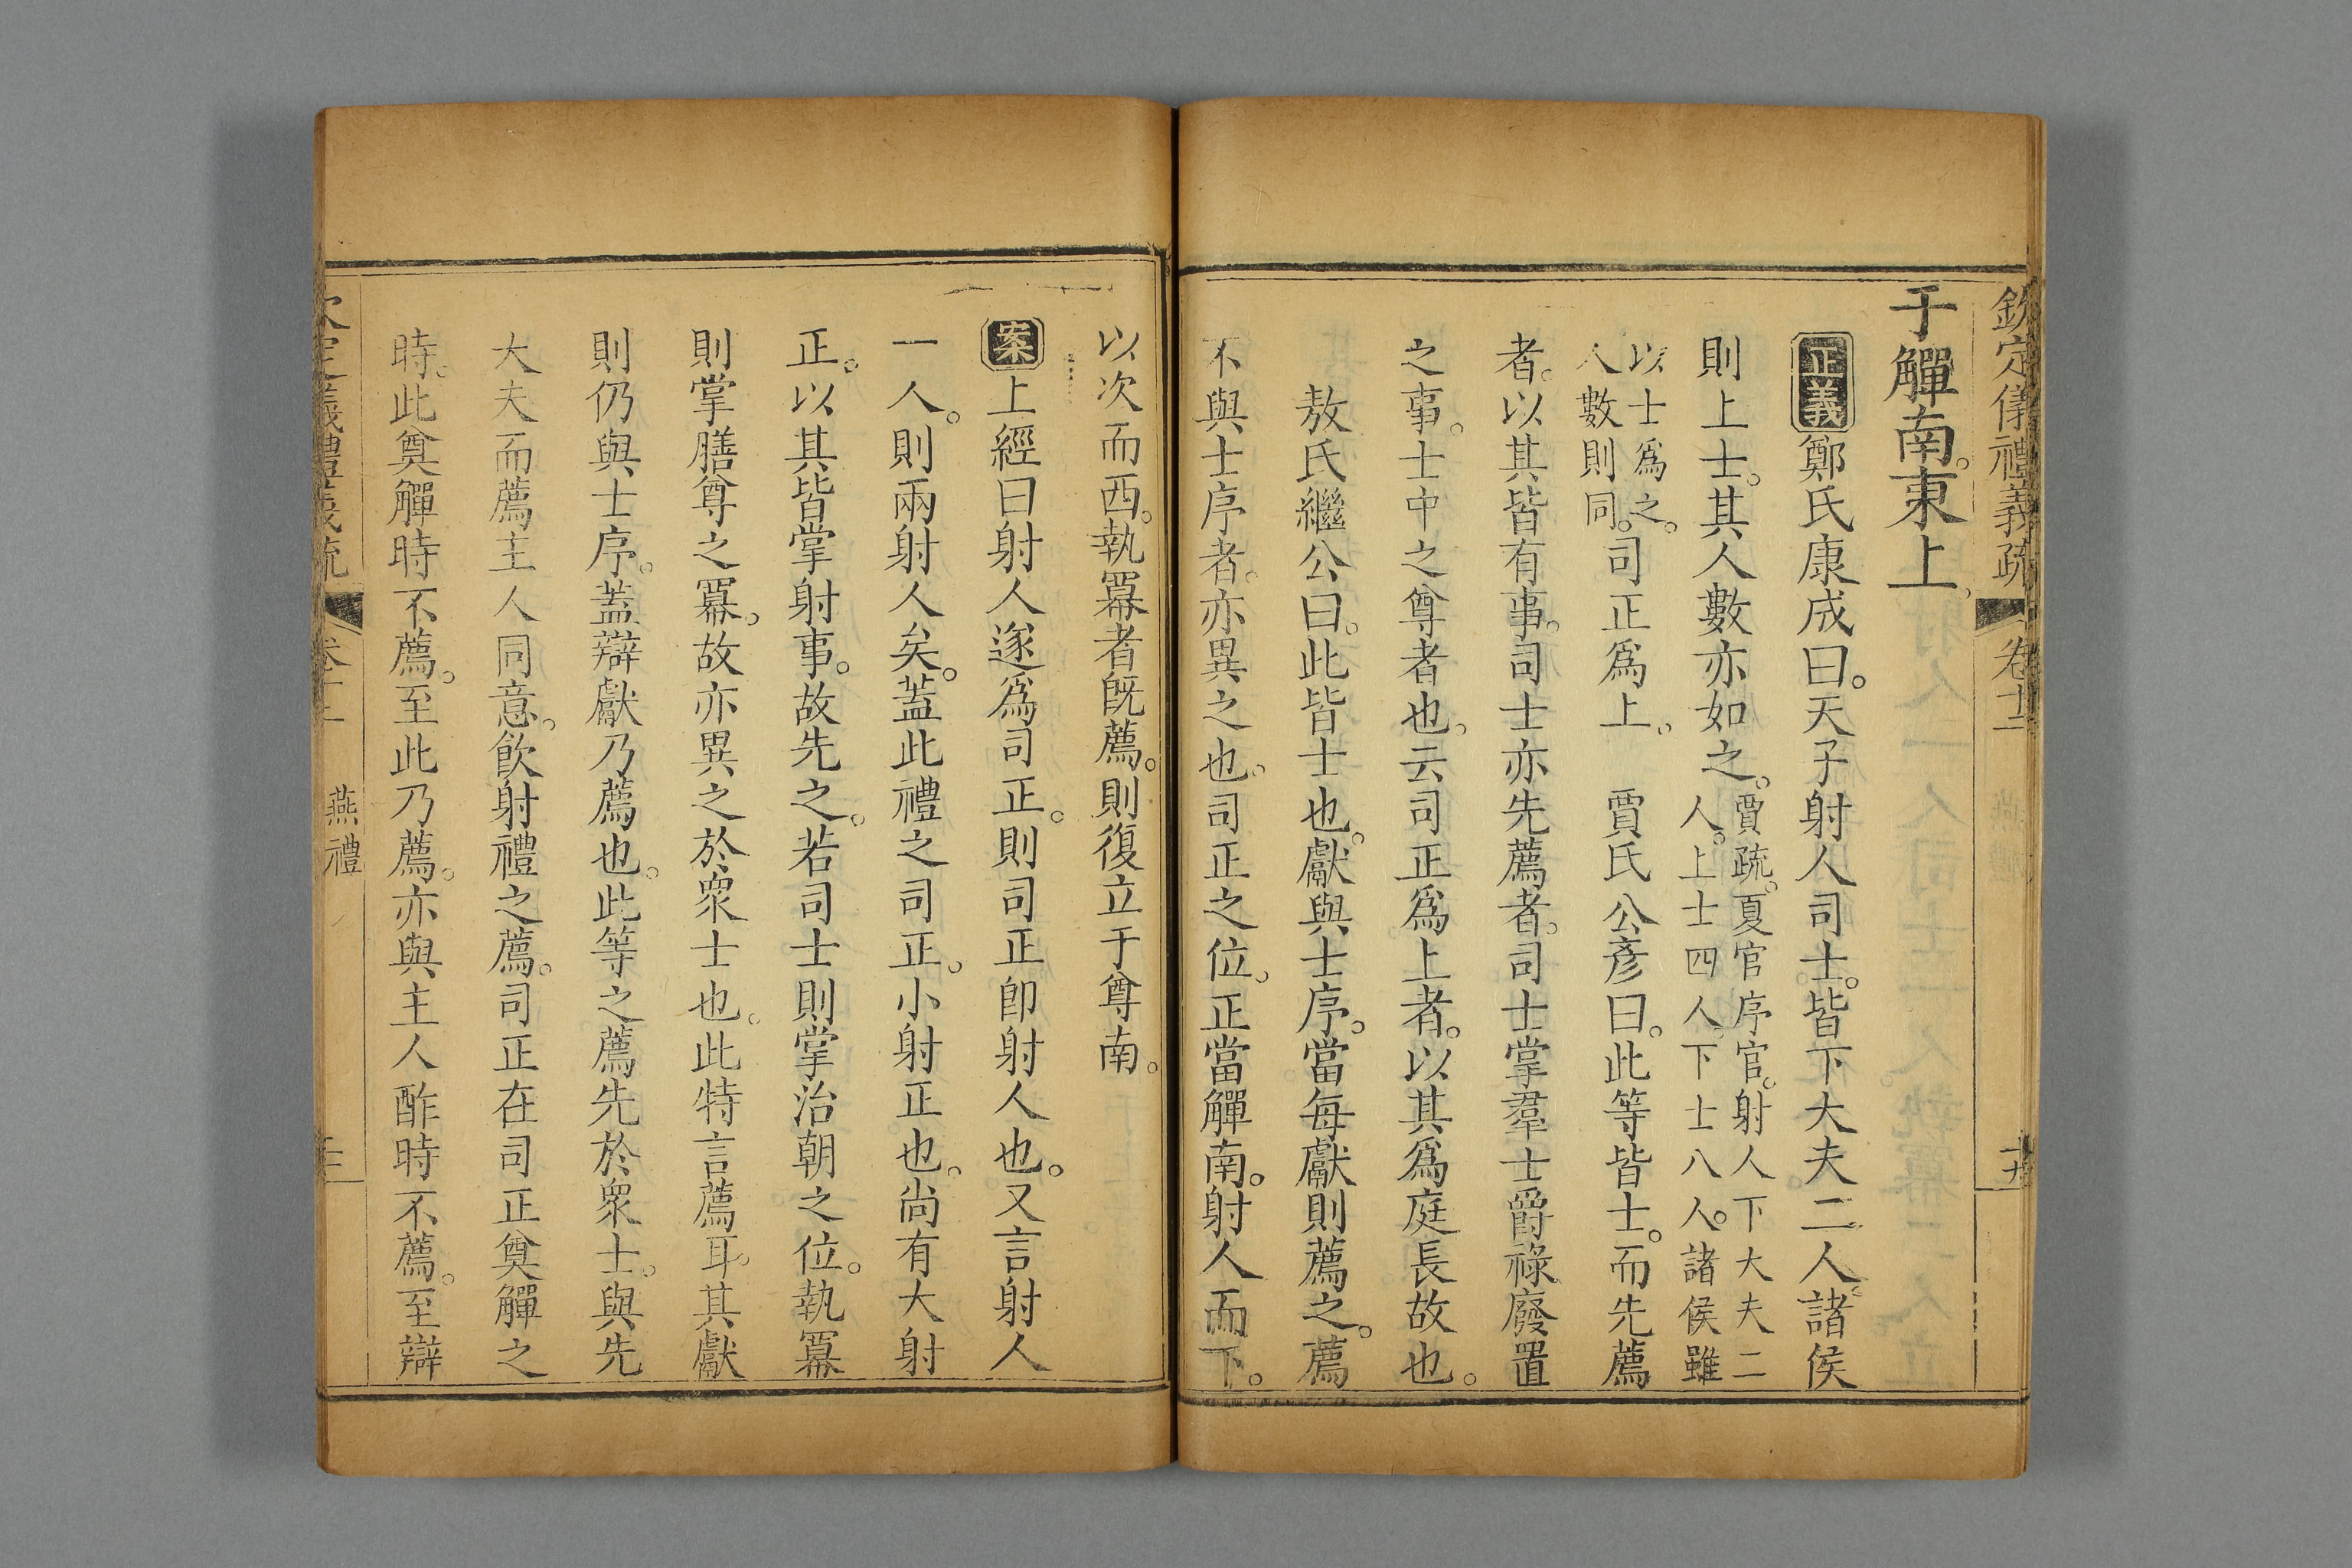 欽定儀禮義疏 卷十二 十九
于觶南。東上。
正義 鄭氏康成曰。天子射人司士。皆下大夫二人。諸侯
則上士。其人數亦如之。賈疏。夏官序官。射人下大夫二
人。上士四人。下士八人。諸侯雖
以士爲之。
人數則同。司正爲上。 賈氏公彥曰。此等皆士。而先薦
者。以其皆有事。司士亦先薦者。司士掌羣士爵祿廢置
之事。士中之尊者也。云司正爲上者。以其爲庭長故也。
敖氏繼公曰。此皆士也。獻與士序。當每獻則薦之。薦
不與士序者。亦異之也。司正之位。正當觶南。射人而下。
以次而西。執冪者旣薦。則復立于尊南。
案 上經曰射人遂爲司正。則司正卽射人也。又言射人
一人。則兩射人矣。蓋此禮之司正。小射正也。尚有大射
正。以其皆掌射事。故先之。若司士則掌治朝之位。執冪
則掌膳尊之冪。故亦異之於衆士也。此特言薦耳。其獻
則仍與士序。蓋辯獻乃薦也。此等之薦先於衆士。與先
大夫而薦主人同意。飮射禮之薦。司正在司正奠觶之
時。此奠觶時不薦。至此乃薦。亦與主人酢時不薦。至辯
燕禮